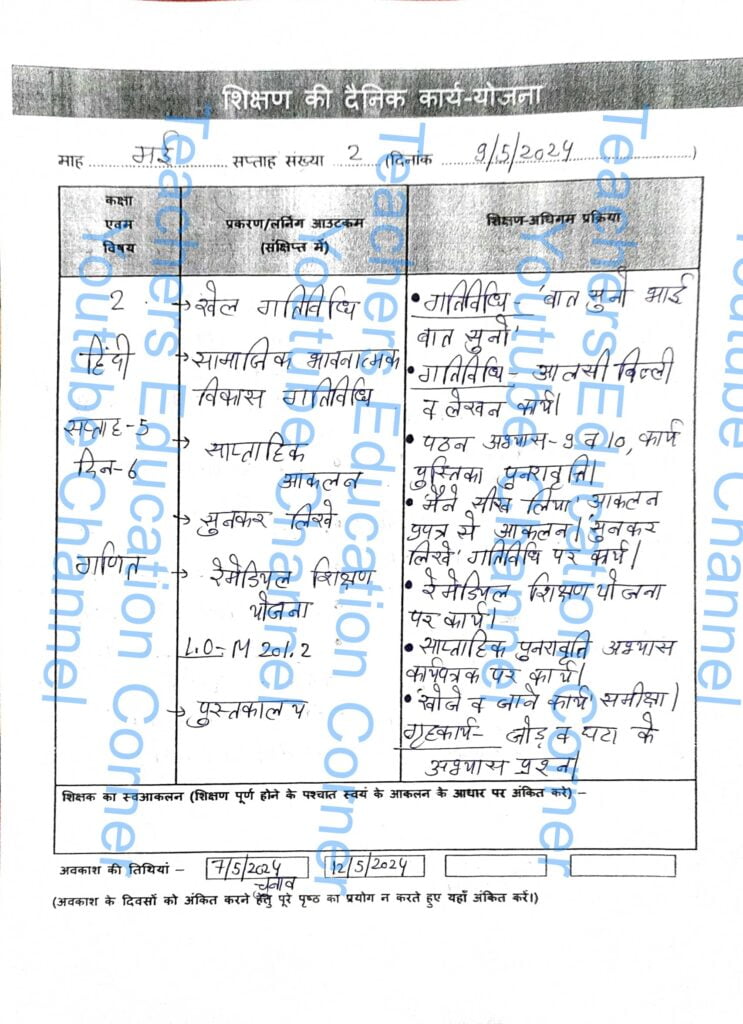 शिक्षण की दैनिक कार्य-योजना
माह मई सप्ताह संख्या 2 (दिनांक 9/5/2024)
कक्षा
एवम
विषय
प्रकरण/लर्निंग आउटकम
(संक्षिप्त में)
शिक्षण-अधिगम प्रक्रिया
2
हिंदी
सप्ताह-5
दिन-6
गणित
→ खेल गतिविधि
→ सामाजिक भावनात्मक
विकास गतिविधि
→ साप्ताहिक
आकलन
→ सुनकर लिखे
→ रेमेडियल शिक्षण
योजना
L.O-M 201.2
→ पुस्तकालय
• गतिविधि- 'बात सुनो भाई
बात सुनो'
• गतिविधि- आलसी बिल्ली
व लेखन कार्य।
• पठन अभ्यास-9 व 10, कार्य
पुस्तिका पुनरावृत्ति।
• 'मैंने सीख लिया' आकलन
प्रपत्र से आकलन। 'सुनकर
लिखे' गतिविधि पर कार्य।
• रेमेडियल शिक्षण योजना
पर कार्य।
• साप्ताहिक पुनरावृत्ति अभ्यास
कार्यपत्रक पर कार्य।
• 'खोजे व जाने कार्य' समीक्षा।
गृहकार्य- जोड़ व घटा के
अभ्यास प्रश्न।
शिक्षक का स्वआकलन (शिक्षण पूर्ण होने के पश्चात स्वयं के आकलन के आधार पर अंकित करे) –
अवकाश की तिथियां – 7/5/2024 12/5/2024
चुनाव
(अवकाश के दिवसों को अंकित करने हेतु पूरे पृष्ठ का प्रयोग न करते हुए यहाँ अंकित करें।)
Teachers Education Corner
Youtube Channel
Teachers Education Corner
Youtube Channel
Teachers Education Corner
Youtube Channel